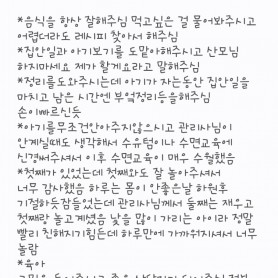 *음식을 항상 잘해주심 먹고싶은 걸 물어봐주시고
어렵더라도 레시피 찾아서 해주심
*집안일과 아기보기를 도맡아해주시고 산모님
하지마세요 제가 할게요라고 말해주심
*정리를도와주시는데 아기가 자는동안 집안일을
마치고 남은 시간엔 부엌정리등을해주심
손이빠르신듯
*아기를무조건안아주지않으시고 관리사님이
안계실때도 생각해서 수유텀이나 수면교육에
신경써주셔서 이후 수면교육이 매우 수월했음
*첫째가 있었는데 첫째와도 잘 놀아주셔서
너무 감사했음 하루는 몸이 안좋은날 하원후
기절하듯잠들었는데 관리사님께서 둘째는 재우고
첫째랑 놀고계셨음 낯을 많이 가리는 아이라 정말
빨리 친해지기힘든데 하루만에 가까워지셔서 너무
놀람
*육아